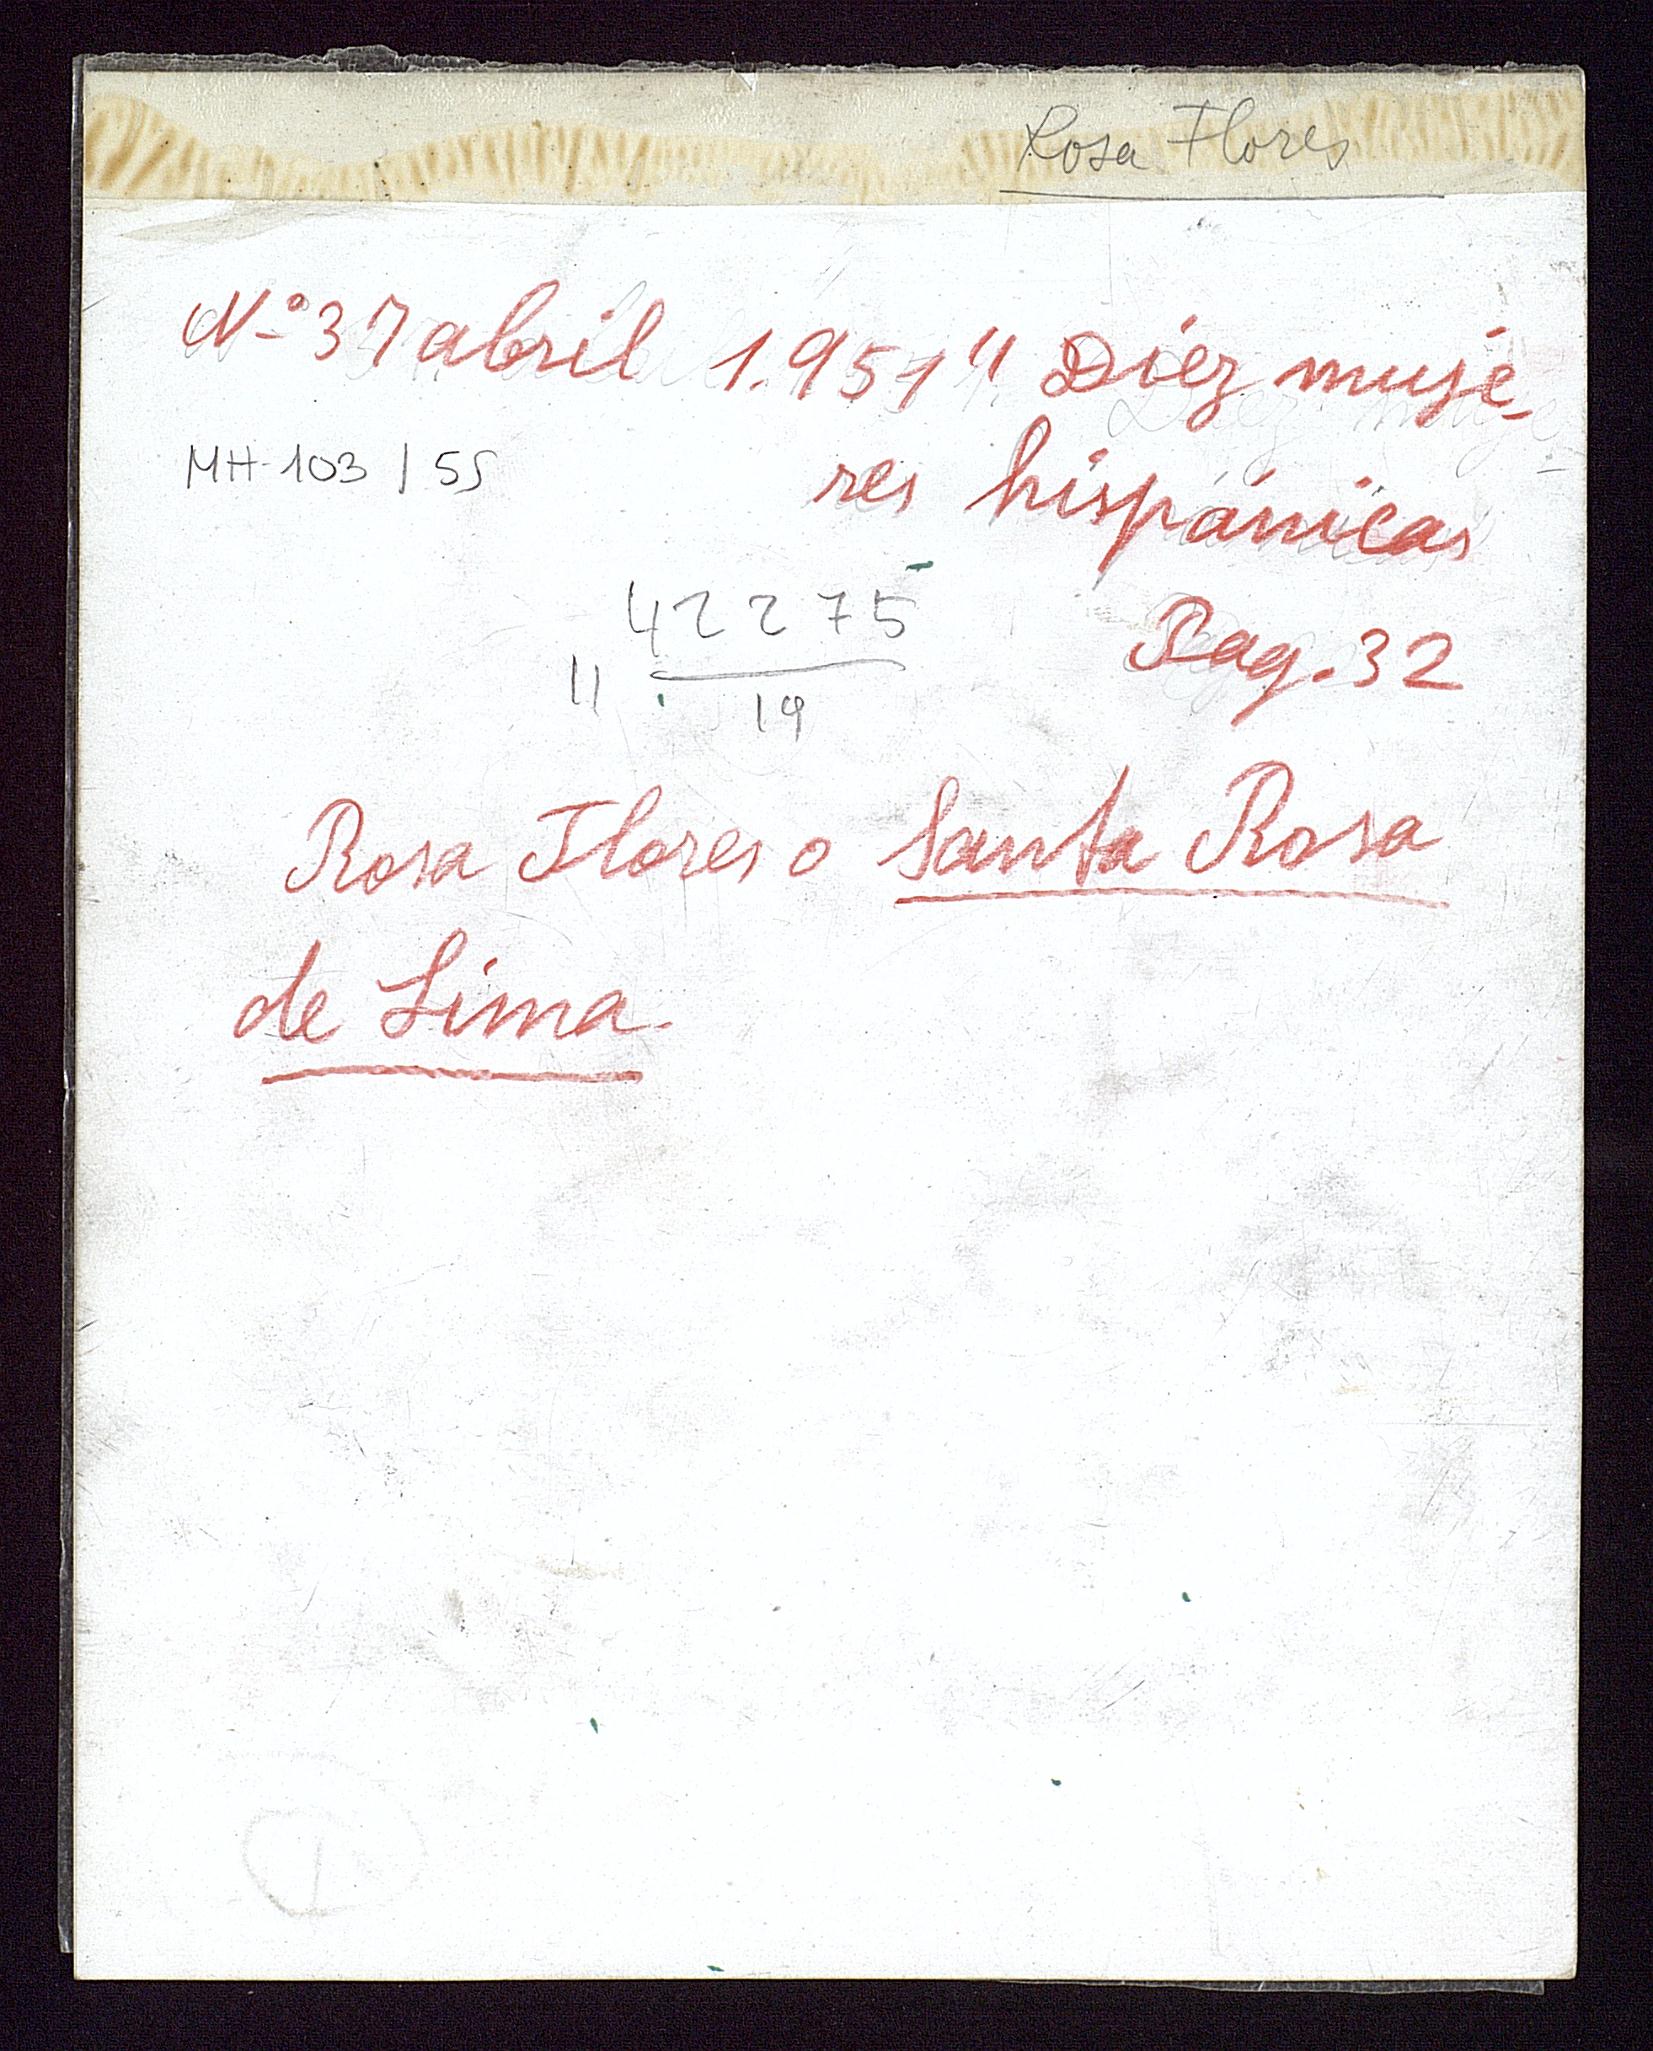 Rosa Flores
Nº 37 abril 1.951 " Diez muje-
res hispánicas
MH-103 / 55
42275
11 19
Pag. 32
Rosa Flores o Santa Rosa
de Lima.
1